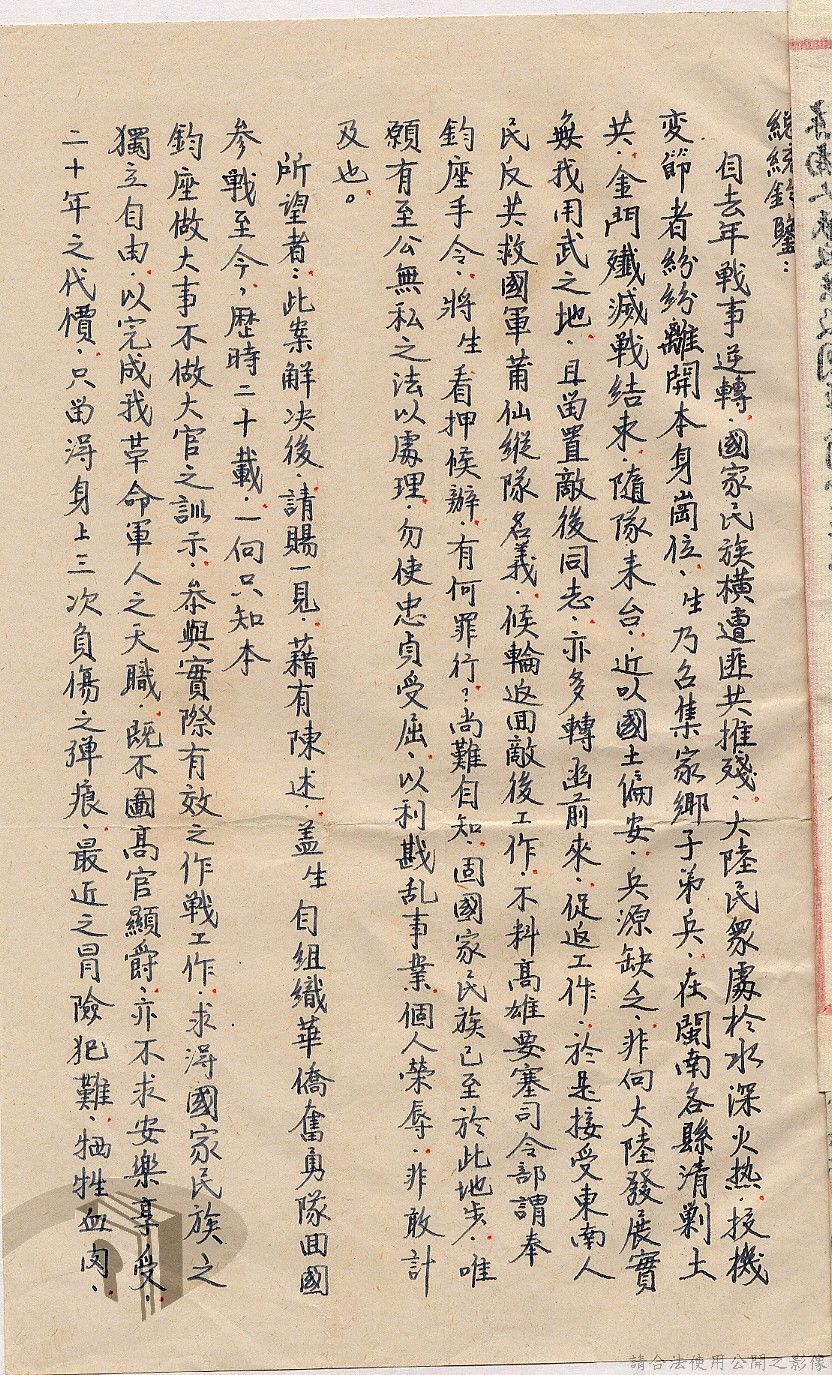 總統鈞鑒：
自去年戰事逆轉，國家民族橫遭匪共摧殘，大陸民衆處於水深火热，投機
变節者紛紛離開本身崗位，生乃召集家鄉子弟兵，在閩南各縣清剿土
共，金門殲滅戰結束，隨隊来台，近以國土偏安，兵源缺乏，非向大陸發展實
無我用武之地，且留置敵後同志，亦多轉函前來，促返工作，於是接受東南人
民反共救國軍莆仙縱隊名義，候輪返回敵後工作，不料高雄要塞司令部謂奉
鈞座手令，將生看押候辦，有何罪行？尚難自知，固國家民族已至於此地步，唯
願有至公無私之法以處理，勿使忠貞受屈，以利戡乱事業，個人榮辱，非敢計
及也。
所望者：此案解决後，請賜一見，藉有陳述，盖生自組織華僑奮勇隊回國
参戰至今，歷時二十載，一向只知本
鈞座做大事不做大官之訓示，参與實際有效之作戰工作，求得國家民族之
獨立自由，以完成我革命軍人之天職，既不圖高官顯爵，亦不求安樂享受，
二十年之代價，只留得身上三次負傷之弹痕，最近之冒險犯難，牺牲血肉，
請合法使用公開之影像